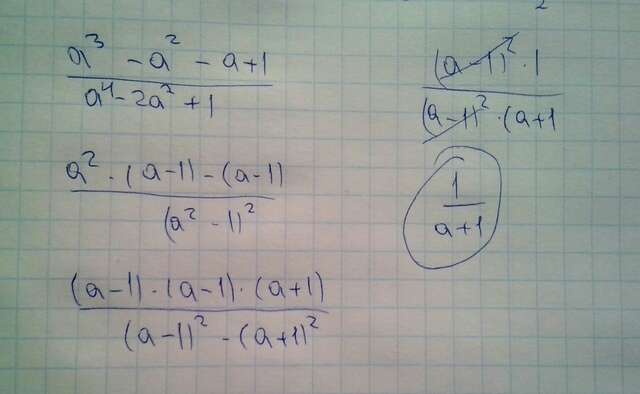 a³ - a² - a + 1
a⁴ - 2a² + 1
a² · (a - 1) - (a - 1)
(a² - 1)²
(a - 1) · (a - 1) · (a + 1)
(a - 1)² - (a + 1)²
2
(a - 1)² · 1
(a - 1)² · (a + 1
1
a + 1